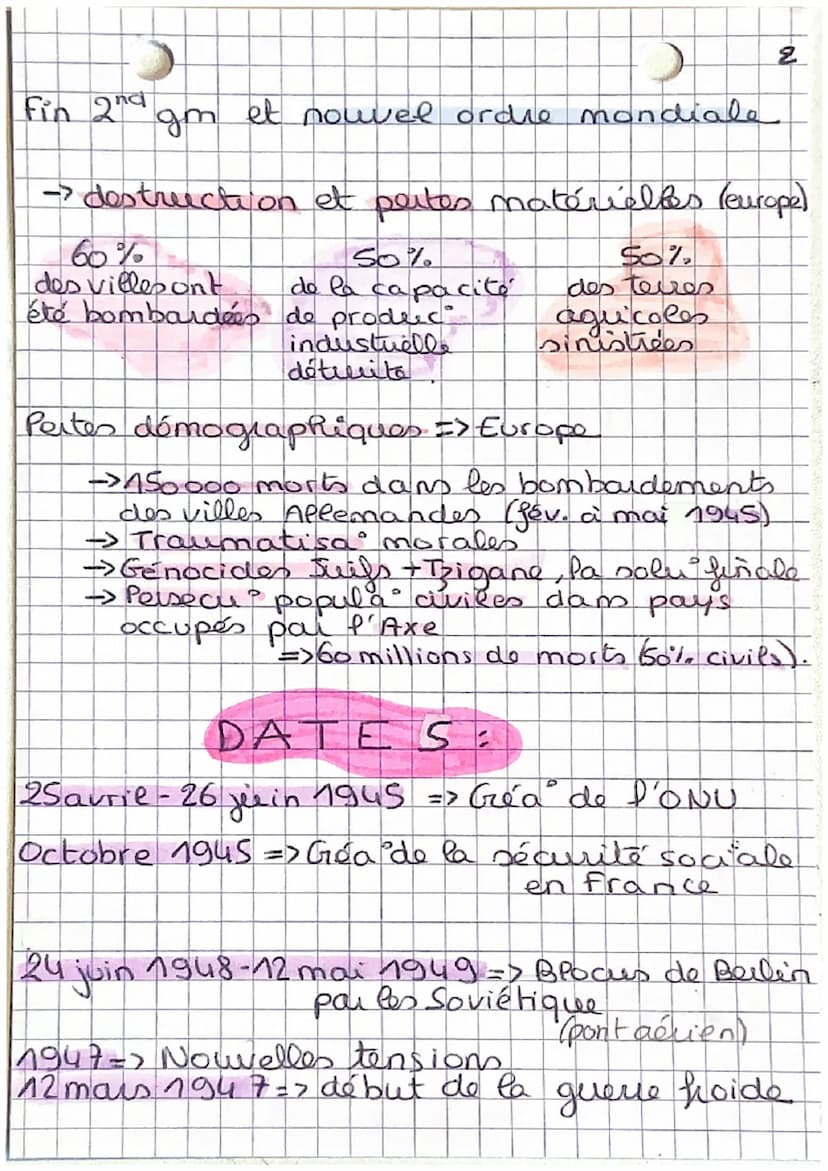 2
Fin 2nd gm et nouvel ordre mondiale
-> destruction et pertes matérielles (europe)
60% 50% 50%
des villes ont de la capacité des terres
été bombardées de produc° agricoles
industrielle sinistrées
détruite.
Pertes démographiques => Europe
-> 150000 morts dans les bombardements
des villes Allemandes (fév. à mai 1945)
-> Traumatisa° morales
-> Génocides Juifs + Tzigane, la solu° finale
-> Persécu° popula° civiles dans pays
occupés par l'Axe
=> 60 millions de morts (50% civils).
DATES:
25 avril - 26 juin 1945 => Créa° de l'ONU
Octobre 1945 => Créa° de la sécurité sociale
en France
24 juin 1948-12 mai 1949 => Blocus de Berlin
par les Soviétique
(pont aérien)
1947 => Nouvelles tensions
12 mars 1947 => début de la guerre froide